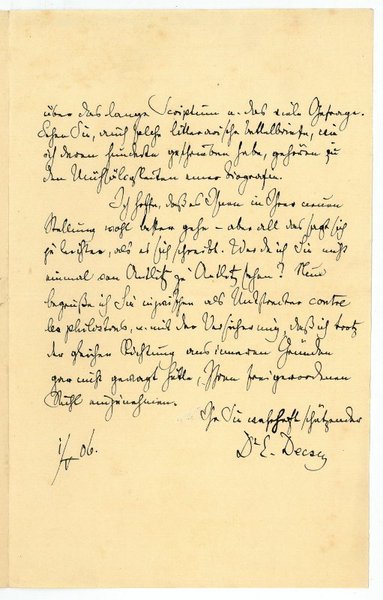 über das lange Scriptum u. das viele Gefrage.
Sehen Sie, auch solche litterarische Bettelbriefe, wie
ich deren hunderte geschrieben habe, gehören zu
den Mühseligkeiten eines Biografen.
Ich hoffe, daß es Ihnen in Ihrer neuen
Stellung wohl besser gehe – aber all das sagt sich
leichter, als es sich schreibt. Werde ich Sie nicht
einmal von Antlitz zu Antlitz sehen? Nun
begrüße ich Sie inzwischen als Mitstreiter contre
les philistins, u. mit der Versicherung, daß ich trotz
der gleichen Richtung aus inneren Gründen
gar nicht gewagt hätte, Ihren freigewordenen
Stuhl einzunehmen.
Ihr Sie wahrhaft schätzender
Dr E. Decsey
06.